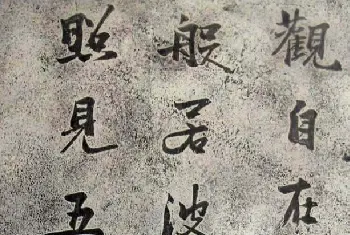 觀自在
般若波
照見五